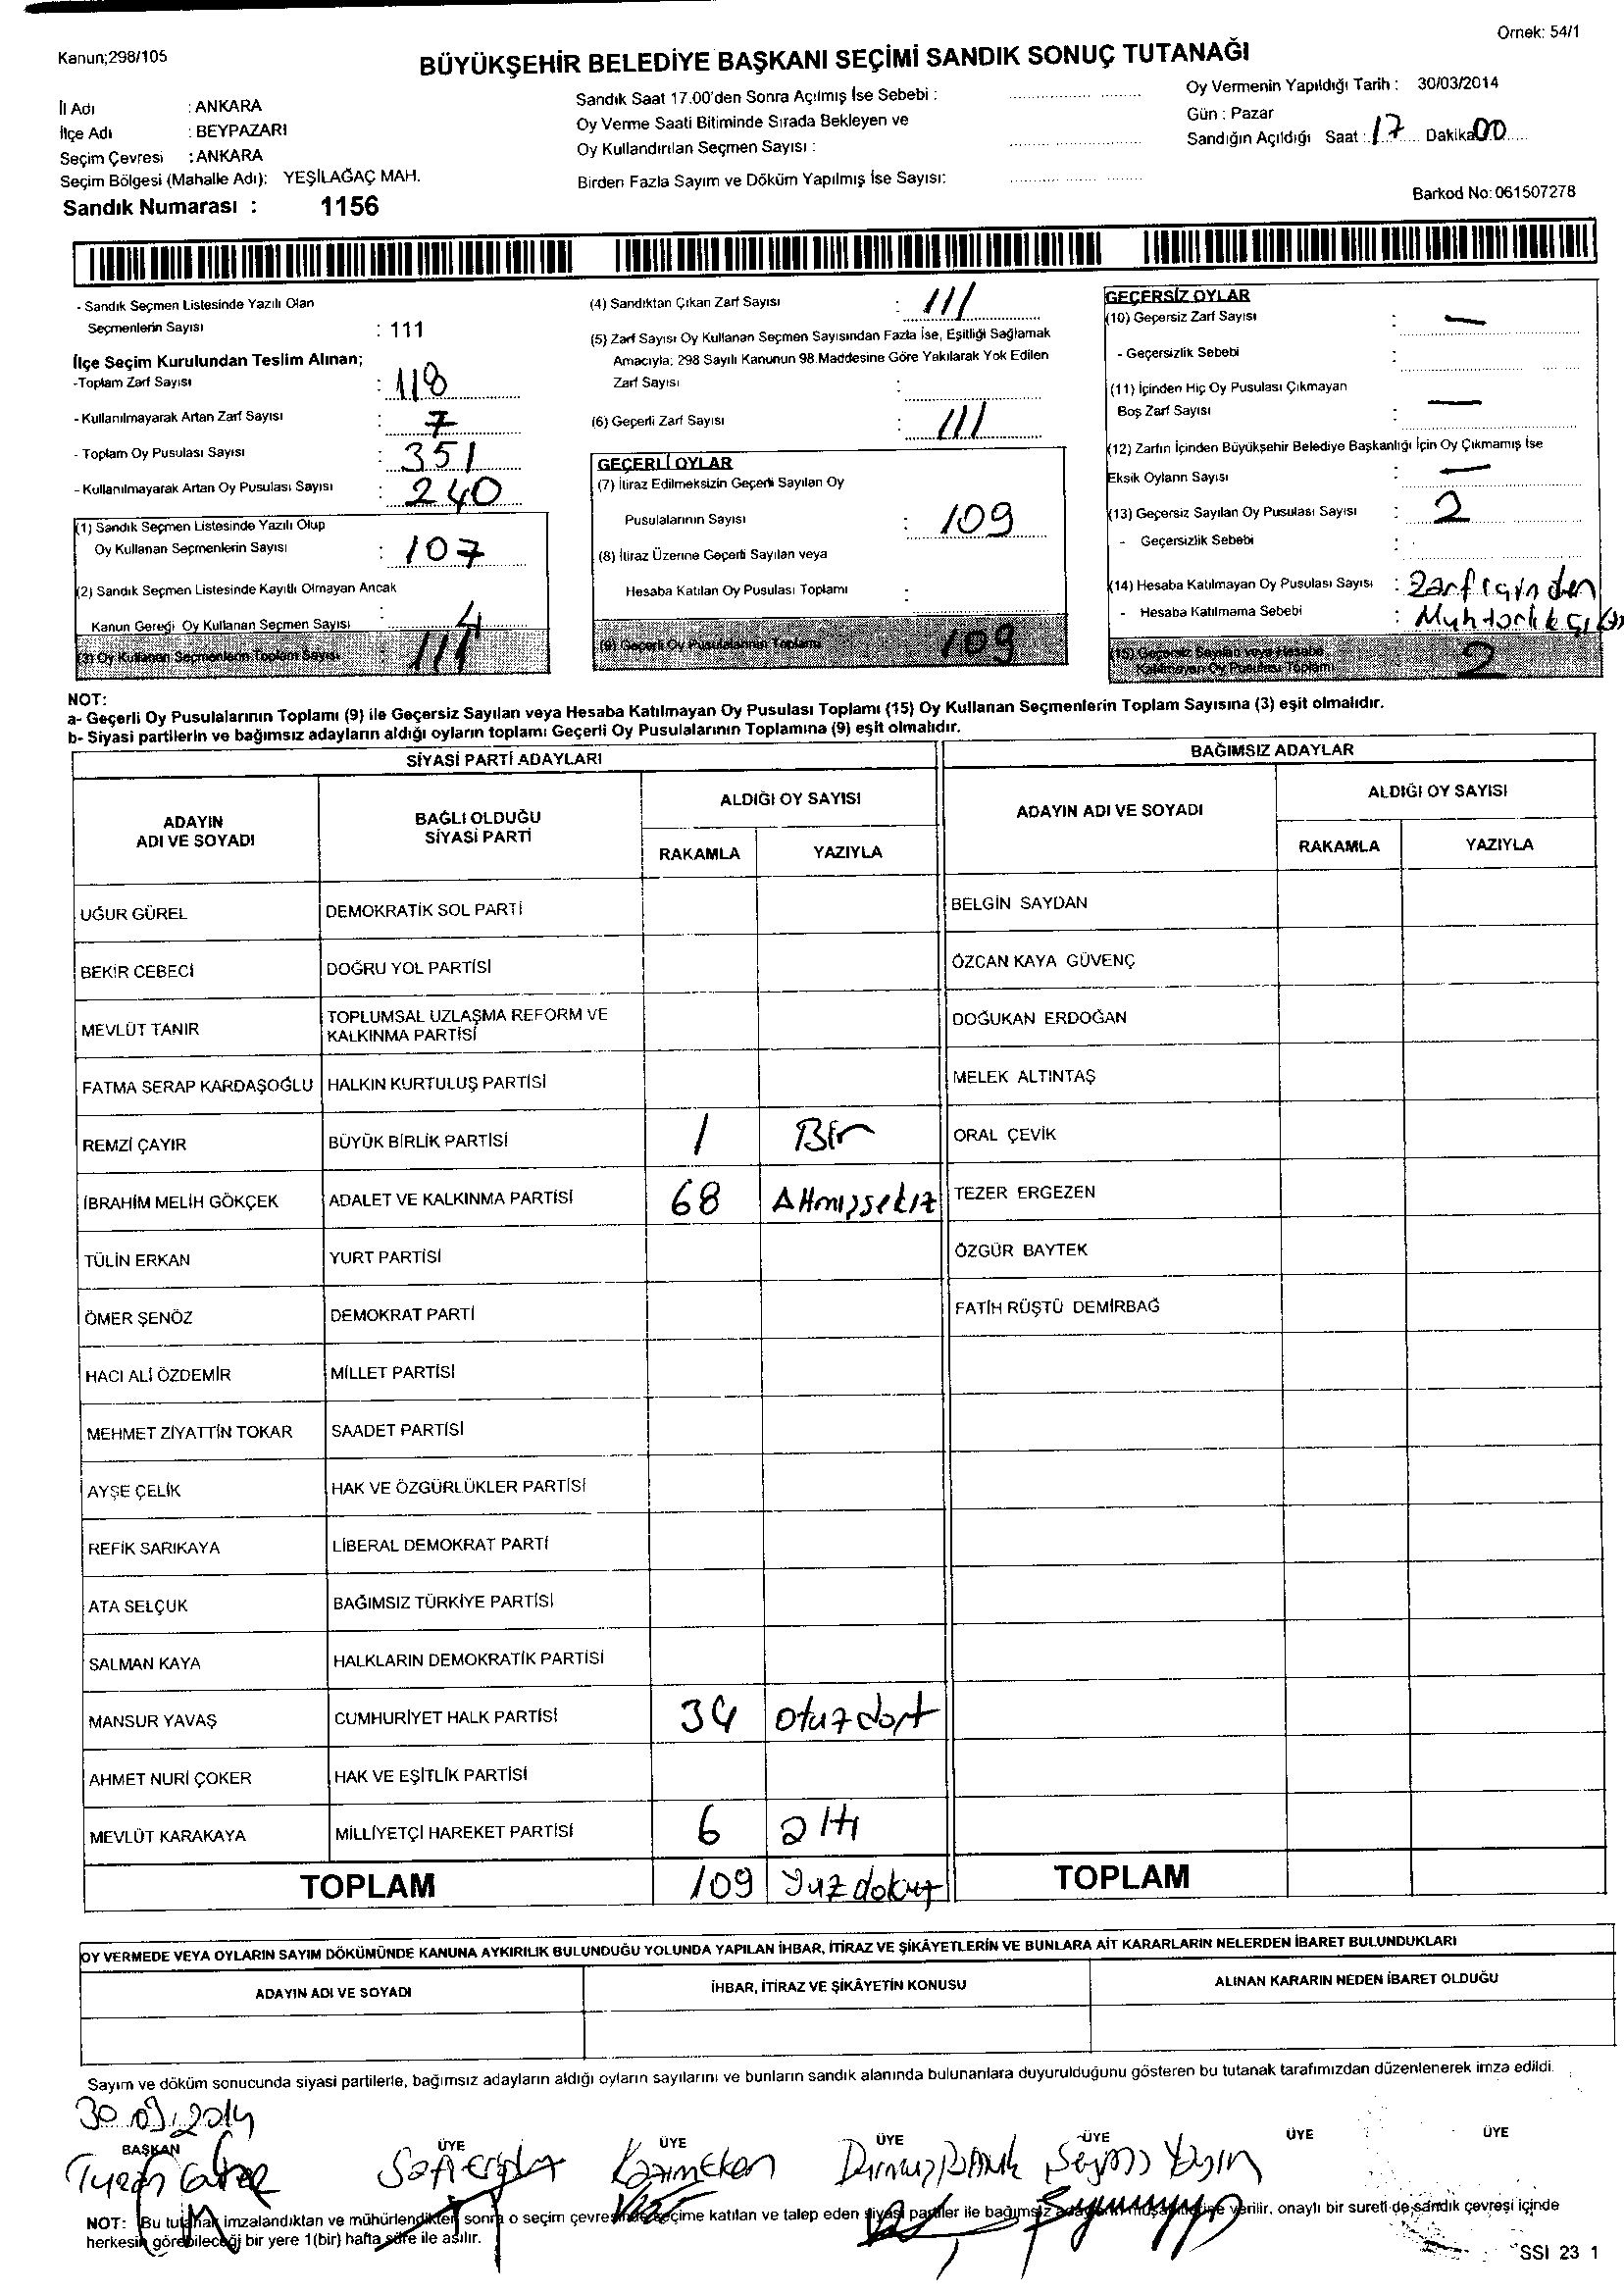 Ornek: 54/1
Kanun;298/105
BÜYÜKŞEHİR BELEDİYE BAŞKANI SEÇİMİ SANDIK SONUÇ TUTANAĞI
İl Adı : ANKARA
İlçe Adı : BEYPAZARI
Seçim Çevresi : ANKARA
Seçim Bölgesi (Mahalle Adı): YEŞİLAĞAÇ MAH.
Sandık Numarası : 1156
Sandık Saat 17.00'den Sonra Açılmış İse Sebebi :
Oy Verme Saati Bitiminde Sırada Bekleyen ve
Oy Kullandırılan Seçmen Sayısı :
Birden Fazla Sayım ve Döküm Yapılmış İse Sayısı:
Oy Vermenin Yapıldığı Tarih : 30/03/2014
Gün : Pazar
Sandığın Açıldığı Saat : 17 Dakika 00
Barkod No: 061507278
- Sandık Seçmen Listesinde Yazılı Olan
Seçmenlerin Sayısı : 111
İlçe Seçim Kurulundan Teslim Alınan;
-Toplam Zarf Sayısı : 118
- Kullanılmayarak Artan Zarf Sayısı : 7
- Toplam Oy Pusulası Sayısı : 351
- Kullanılmayarak Artan Oy Pusulası Sayısı : 240
(1) Sandık Seçmen Listesinde Yazılı Olup
Oy Kullanan Seçmenlerin Sayısı : 107
(2) Sandık Seçmen Listesinde Kayıtlı Olmayan Ancak
Kanun Gereği Oy Kullanan Seçmen Sayısı : 4
(3) Oy Kullanan Seçmenlerin Toplam Sayısı : 111
(4) Sandıktan Çıkan Zarf Sayısı : 111
(5) Zarf Sayısı Oy Kullanan Seçmen Sayısından Fazla İse, Eşitliği Sağlamak
Amacıyla; 298 Sayılı Kanunun 98.Maddesine Göre Yakılarak Yok Edilen
Zarf Sayısı :
(6) Geçerli Zarf Sayısı : 111
GEÇERLİ OYLAR
(7) İtiraz Edilmeksizin Geçerli Sayılan Oy
Pusulalarının Sayısı : 109
(8) İtiraz Üzerine Geçerli Sayılan veya
Hesaba Katılan Oy Pusulası Toplamı :
(9) Geçerli Oy Pusulalarının Toplamı 109
GEÇERSİZ OYLAR
(10) Geçersiz Zarf Sayısı : –
- Geçersizlik Sebebi :
(11) İçinden Hiç Oy Pusulası Çıkmayan
Boş Zarf Sayısı : –
(12) Zarfın İçinden Büyükşehir Belediye Başkanlığı İçin Oy Çıkmamış İse
Eksik Oyların Sayısı : –
(13) Geçersiz Sayılan Oy Pusulası Sayısı : 2
- Geçersizlik Sebebi :
(14) Hesaba Katılmayan Oy Pusulası Sayısı : Zarf içinden
- Hesaba Katılmama Sebebi : Muhtarlık
(15) Geçersiz Sayılan veya Hesaba
Katılmayan Oy Pusulası Toplamı 2
NOT:
a- Geçerli Oy Pusulalarının Toplamı (9) ile Geçersiz Sayılan veya Hesaba Katılmayan Oy Pusulası Toplamı (15) Oy Kullanan Seçmenlerin Toplam Sayısına (3) eşit olmalıdır.
b- Siyasi partilerin ve bağımsız adayların aldığı oyların toplamı Geçerli Oy Pusulalarının Toplamına (9) eşit olmalıdır.
SİYASİ PARTİ ADAYLARI
ADAYIN ADI VE SOYADI BAĞLI OLDUĞU SİYASİ PARTİ ALDIĞI OY SAYISI
RAKAMLA YAZIYLA
UĞUR GÜREL DEMOKRATİK SOL PARTİ
BEKİR CEBECİ DOĞRU YOL PARTİSİ
MEVLÜT TANIR TOPLUMSAL UZLAŞMA REFORM VE KALKINMA PARTİSİ
FATMA SERAP KARDAŞOĞLU HALKIN KURTULUŞ PARTİSİ
REMZİ ÇAYIR BÜYÜK BİRLİK PARTİSİ 1 Bir
İBRAHİM MELİH GÖKÇEK ADALET VE KALKINMA PARTİSİ 68 Altmışsekiz
TÜLİN ERKAN YURT PARTİSİ
ÖMER ŞENÖZ DEMOKRAT PARTİ
HACI ALİ ÖZDEMİR MİLLET PARTİSİ
MEHMET ZİYATTİN TOKAR SAADET PARTİSİ
AYŞE ÇELİK HAK VE ÖZGÜRLÜKLER PARTİSİ
REFİK SARIKAYA LİBERAL DEMOKRAT PARTİ
ATA SELÇUK BAĞIMSIZ TÜRKİYE PARTİSİ
SALMAN KAYA HALKLARIN DEMOKRATİK PARTİSİ
MANSUR YAVAŞ CUMHURİYET HALK PARTİSİ 34 otuzdört
AHMET NURİ ÇOKER HAK VE EŞİTLİK PARTİSİ
MEVLÜT KARAKAYA MİLLİYETÇİ HAREKET PARTİSİ 6 altı
TOPLAM 109 Yüzdokuz
BAĞIMSIZ ADAYLAR
ADAYIN ADI VE SOYADI ALDIĞI OY SAYISI
RAKAMLA YAZIYLA
BELGİN SAYDAN
ÖZCAN KAYA GÜVENÇ
DOĞUKAN ERDOĞAN
MELEK ALTINTAŞ
ORAL ÇEVİK
TEZER ERGEZEN
ÖZGÜR BAYTEK
FATİH RÜŞTÜ DEMİRBAĞ
TOPLAM
OY VERMEDE VEYA OYLARIN SAYIM DÖKÜMÜNDE KANUNA AYKIRILIK BULUNDUĞU YOLUNDA YAPILAN İHBAR, İTİRAZ VE ŞİKÂYETLERİN VE BUNLARA AİT KARARLARIN NELERDEN İBARET BULUNDUKLARI
ADAYIN ADI VE SOYADI İHBAR, İTİRAZ VE ŞİKÂYETİN KONUSU ALINAN KARARIN NEDEN İBARET OLDUĞU
Sayım ve döküm sonucunda siyasi partilerle, bağımsız adayların aldığı oyların sayılarını ve bunların sandık alanında bulunanlara duyurulduğunu gösteren bu tutanak tarafımızdan düzenlenerek imza edildi.
30.03.2014
BAŞKAN ÜYE ÜYE ÜYE ÜYE ÜYE ÜYE
NOT: Bu tutanak imzalandıktan ve mühürlendikten sonra o seçim çevresinde seçime katılan ve talep eden siyasi partiler ile bağımsız verilir, onaylı bir sureti de sandık çevresi içinde
herkesin görebileceği bir yere 1(bir) hafta süre ile asılır.
SSI 23 1